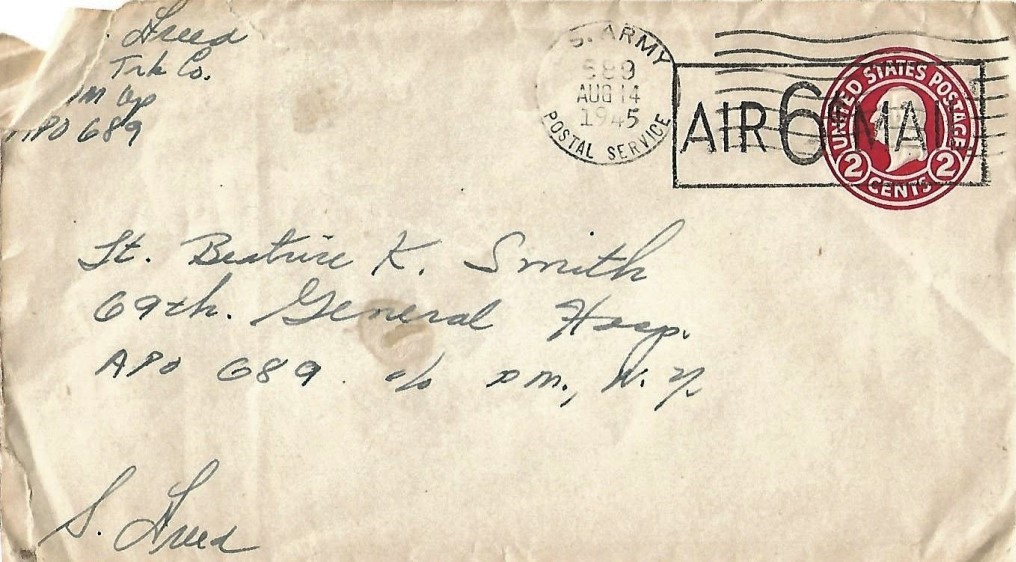 Freed
Trk Co.
APO 689
U.S. ARMY
689
AUG 14
1945
POSTAL SERVICE
AIR 6¢ MAIL
UNITED STATES POSTAGE
2 CENTS 2
Lt. Beatrice K. Smith
69th. General Hosp.
APO 689. c/o PM., N.Y.
S. Freed